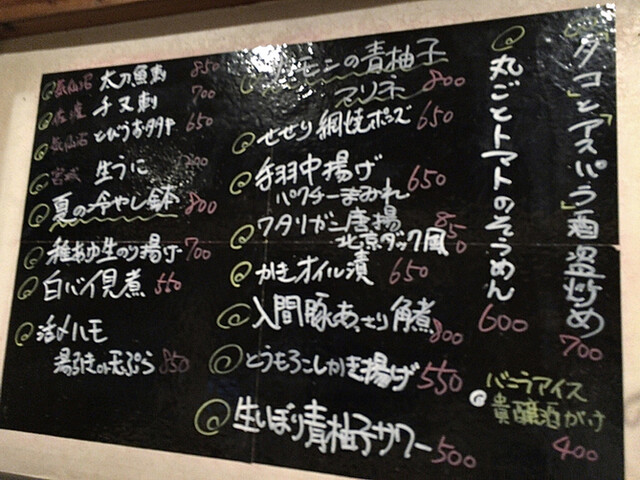 タコとアスパラ酒盗炒め 700
丸ごとトマトのそうめん 600
バニラアイス
貴醸酒がけ
400
の青柚子
マリネ 800
せせり網焼ポンズ 650
手羽中揚げ
パクチーまみれ 650
ワタリガニ唐揚
北京ダック風 850
かきオイル漬 650
入間豚あっさり角煮 800
とうもろこしかき揚げ 550
生しぼり青柚子サワー 500
気仙沼 太刀魚刺 850
佐渡 チヌ刺 700
気仙沼 とびうおタタキ 650
宮城 生うに
夏の冷やし鉢 800
稚あゆ生のり揚げ 700
白バイ貝煮 550
活〆ハモ
湯引きor天ぷら 850